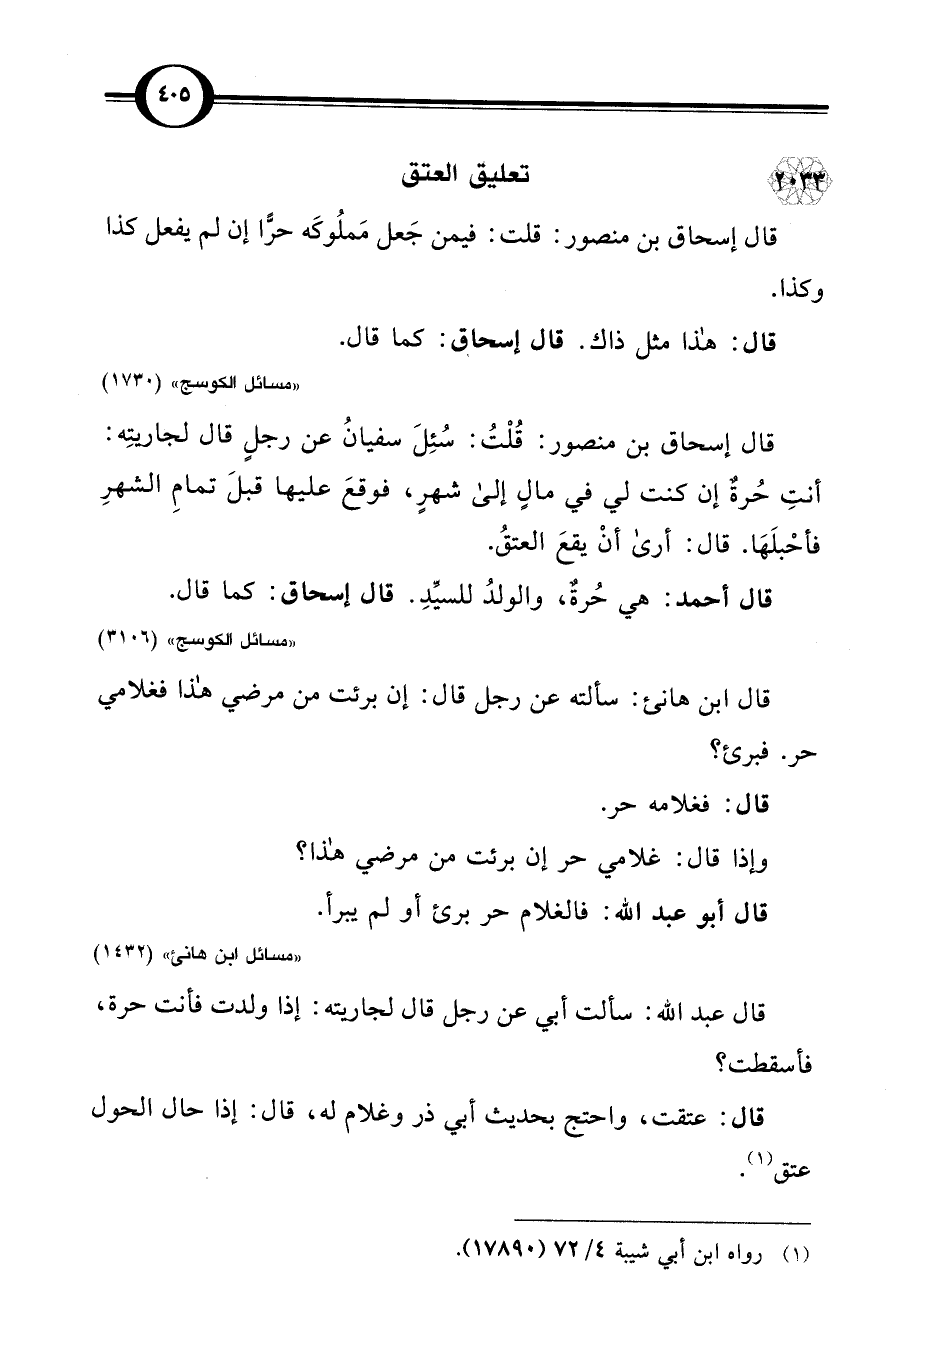 ٤٠٥
٢٠٣٣ تعليق العتق
قال إسحاق بن منصور: قلت: فيمن جَعل مَملُوكَه حرًّا إن لم يفعل كذا
وكذا.
قال: هٰذا مثل ذاك. قال إسحاق: كما قال.
«مسائل الكوسج» (١٧٣٠)
قال إسحاق بن منصور: قُلْتُ: سُئِلَ سفيانُ عن رجلٍ قال لجاريتِه:
أنتِ حُرةٌ إن كنت لي في مالٍ إلىٰ شهرٍ، فوقعَ عليها قبلَ تمامِ الشهرِ
فأحْبلَهَا. قال: أرىٰ أنْ يقعَ العتقُ.
قال أحمد: هي حُرةٌ، والولدُ للسيِّدِ. قال إسحاق: كما قال.
«مسائل الكوسج» (٣١٠٦)
قال ابن هانئ: سألته عن رجل قال: إن برئت من مرضي هٰذا فغلامي
حر. فبرئ؟
قال: فغلامه حر.
وإذا قال: غلامي حر إن برئت من مرضي هٰذا؟
قال أبو عبد الله: فالغلام حر برئ أو لم يبرأ.
«مسائل ابن هانئ» (١٤٣٢)
قال عبد الله: سألت أبي عن رجل قال لجاريته: إذا ولدت فأنت حرة،
فأسقطت؟
قال: عتقت، واحتج بحديث أبي ذر وغلام له، قال: إذا حال الحول
عتق(١).
(١) رواه ابن أبي شيبة ٤/ ٧٢ (١٧٨٩٠).